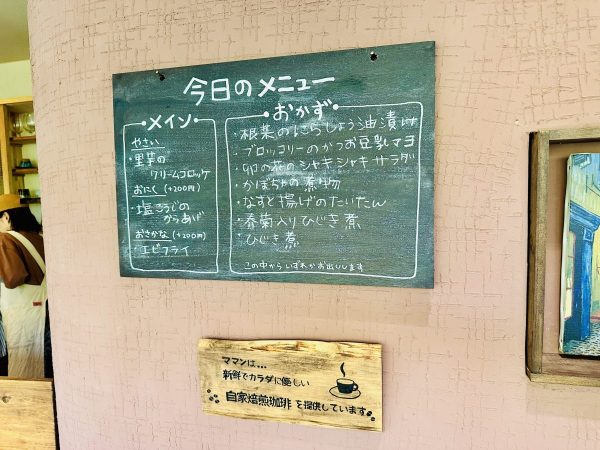 今日のメニュー
メイン
やさい
・里芋の
クリームコロッケ
おにく(+200円)
・塩こうじの
からあげ
おさかな(+200円)
・エビフライ
おかず
・根菜のにらしょう油漬け
・ブロッコリーのかつお豆乳マヨ
・卯の花のシャキシャキサラダ
・かぼちゃの煮物
・なすと揚げのたいたん
・春菊入りひじき煮
・ひじき煮
この中からいずれかお出しします
ママンは...
新鮮でカラダに優しい
自家焙煎珈琲を提供しています